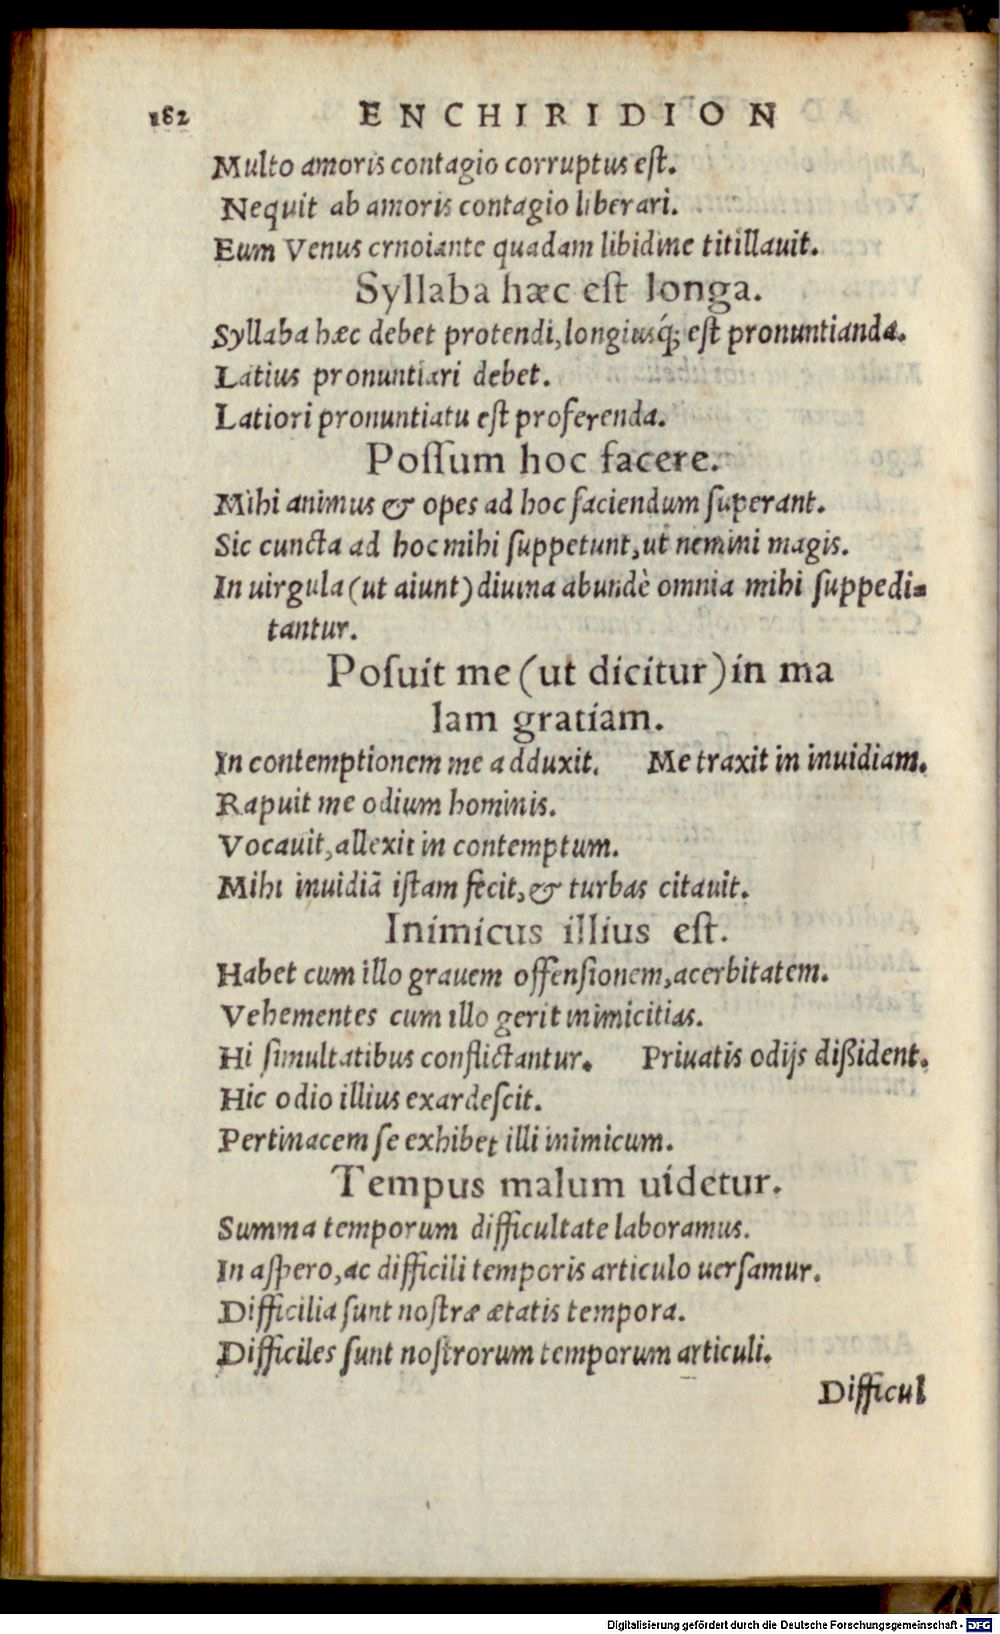 182 ENCHIRIDION
Multo amoris contagio corruptus eſt.
Nequit ab amoris contagio liberari.
Eum Venus crnoiante quadam libidine titillauit.
Syllaba hæc eſt longa.
Syllaba hæc debet protendi, longiusq́; eſt pronuntianda.
Latius pronuntiari debet.
Latiori pronuntiatu eſt proferenda.
Poſſum hoc facere.
Mihi animus & opes ad hoc faciendum ſuperant.
Sic cuncta ad hoc mihi ſuppetunt, ut nemini magis.
In uirgula (ut aiunt) diuina abundè omnia mihi ſuppedi⸗
tantur.
Poſuit me (ut dicitur) in ma
lam gratiam.
In contemptionem me adduxit. Me traxit in inuidiam.
Rapuit me odium hominis.
Vocauit, allexit in contemptum.
Mihi inuidiã iſtam fecit, & turbas citauit.
Inimicus illius eſt.
Habet cum illo grauem offenſionem, acerbitatem.
Vehementes cum illo gerit inimicitias.
Hi ſimultatibus conflictantur. Priuatis odijs dißident.
Hic odio illius exardeſcit.
Pertinacem ſe exhibet illi inimicum.
Tempus malum uidetur.
Summa temporum difficultate laboramus.
In aſpero, ac difficili temporis articulo uerſamur.
Difficilia ſunt noſtræ ætatis tempora.
Difficiles ſunt noſtrorum temporum articuli.
Difficul
Digitalisierung gefördert durch die Deutsche Forschungsgemeinschaft - DFG